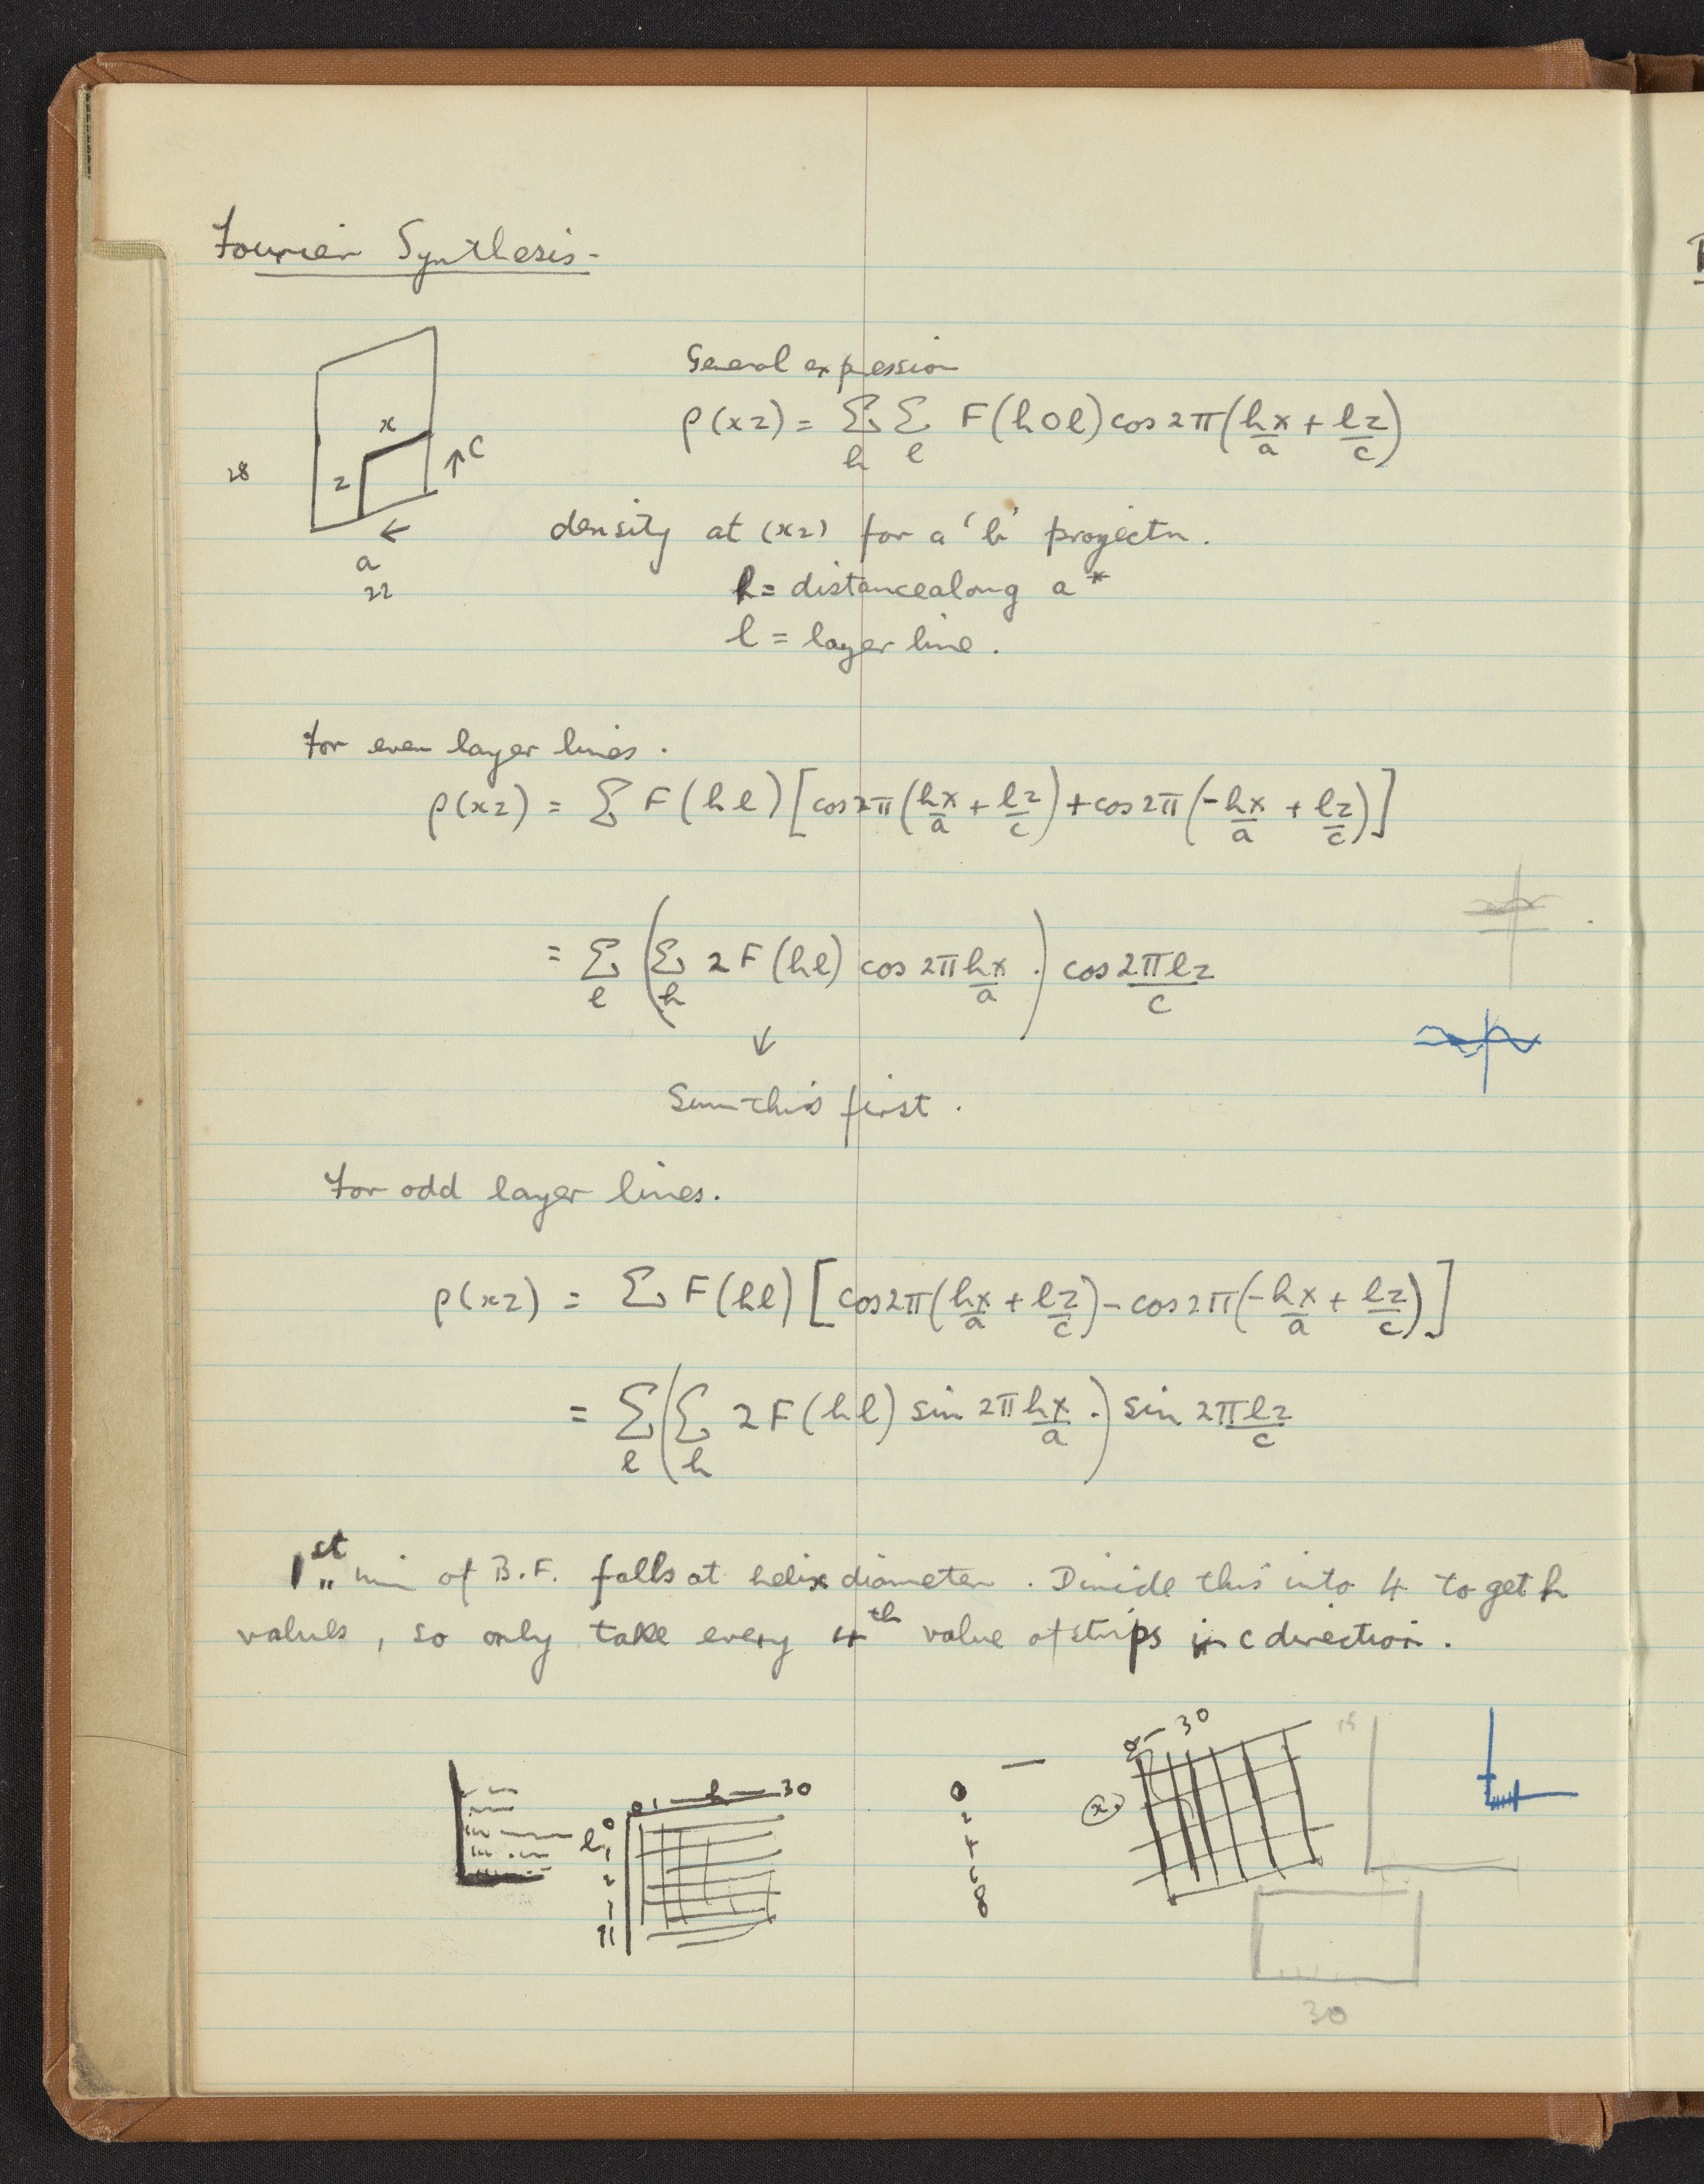 Fourier Synthesis-
x
z
↑C
28
←
a
22
General expression
ρ(xz) = Σ_h Σ_l F(h0l) cos 2π(hx/a + lz/c)
density at (xz) for a 'b' projectn.
h = distance along a*
l = layer line.
For even layer lines.
ρ(xz) = Σ F(hl) [cos 2π(hx/a + lz/c) + cos 2π(-hx/a + lz/c)]
= Σ_l (Σ_h 2 F(hl) cos 2π hx/a .) cos 2πlz/c
↓
Sum this first.
For odd layer lines.
ρ(xz) = Σ F(hl) [cos 2π(hx/a + lz/c) - cos 2π(-hx/a + lz/c)]
= Σ_l (Σ_h 2 F(hl) sin 2π hx/a .) sin 2πlz/c
1st min of B.F. falls at helix diameter. Divide this into 4 to get h
values, so only take every 4th value of strips in c direction.
0 1 — h — 30
l
0
1
2
11
0
2
4
6
8
0 — 30
x
15
30